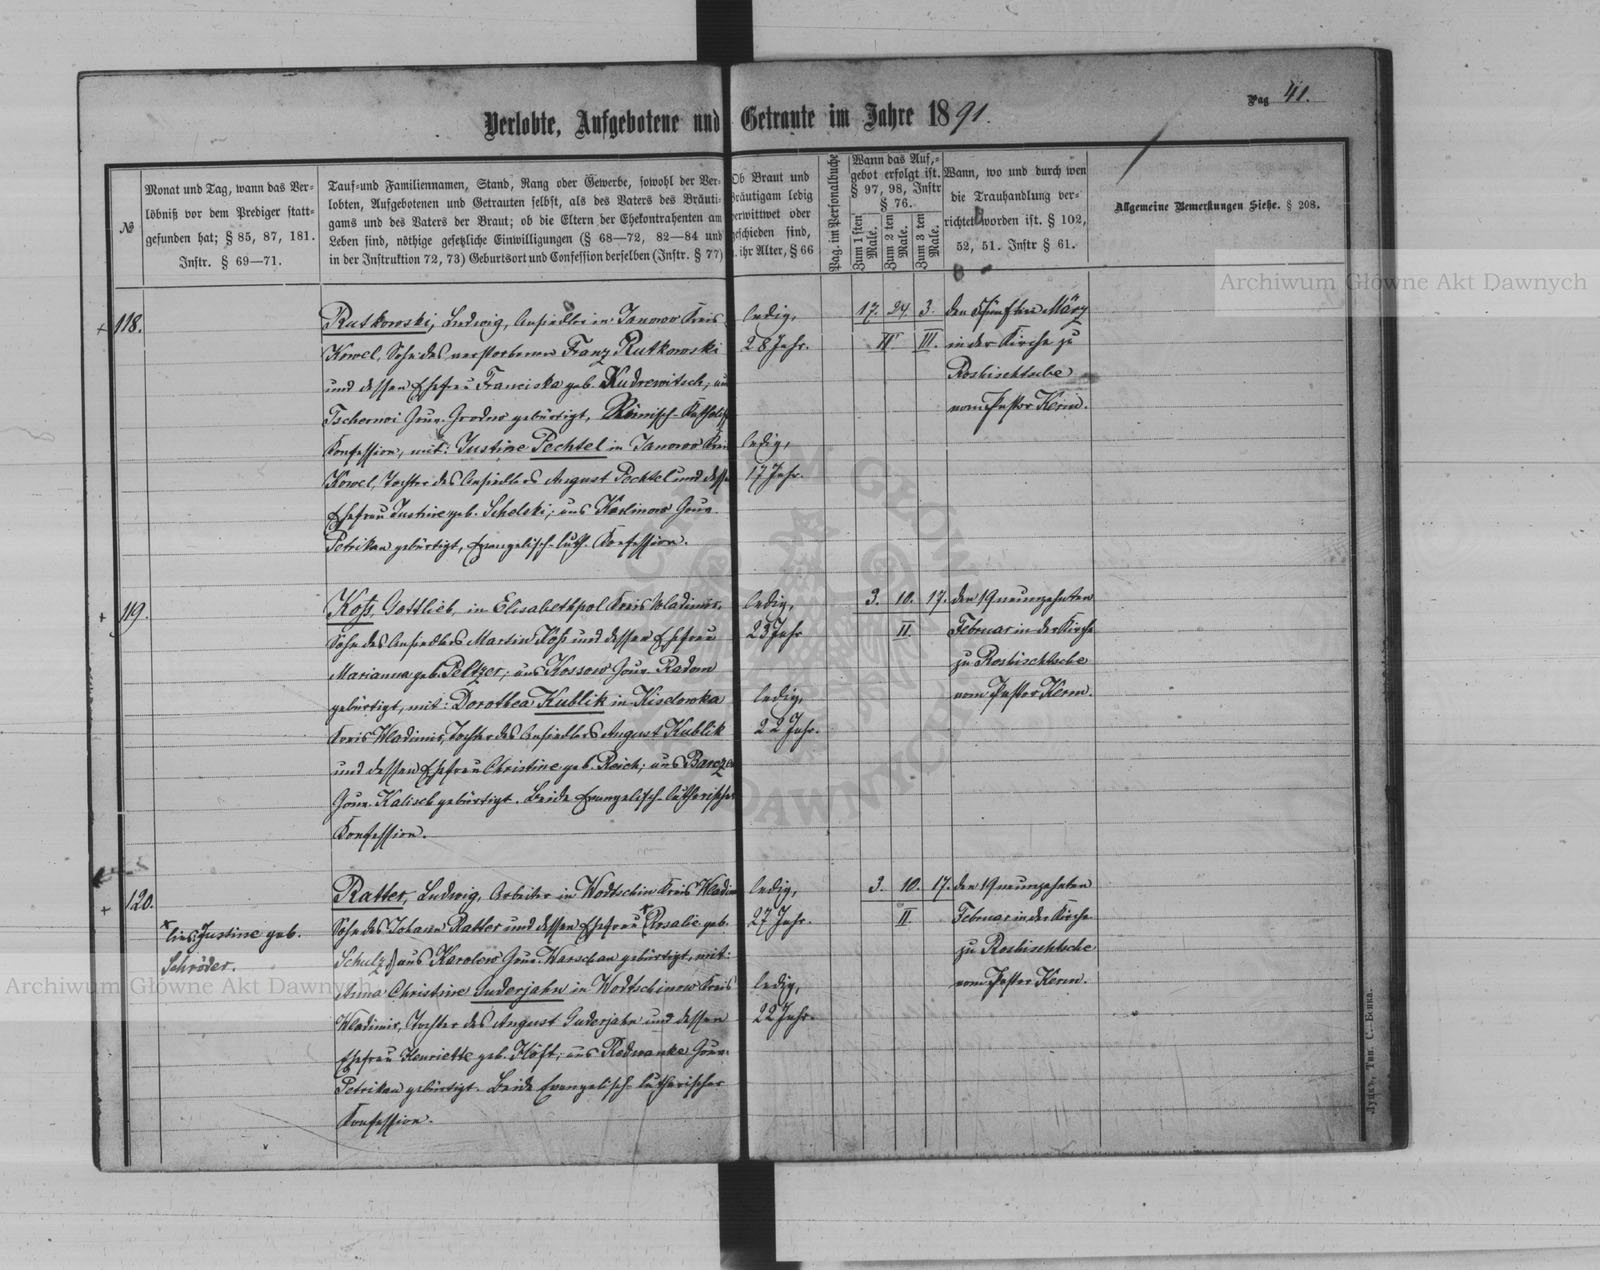 Pag 41.
Verlobte, Aufgebotene und Getraute im Jahre 1891.
№
Monat und Tag, wann das Ver-
löbniß vor dem Prediger statt-
gefunden hat; § 85, 87, 181.
Instr. § 69—71.
Tauf- und Familiennamen, Stand, Rang oder Gewerbe, sowohl der Ver-
lobten, Aufgebotenen und Getrauten selbst, als des Vaters des Bräuti-
gams und des Vaters der Braut; ob die Eltern der Ehekontrahenten am
Leben sind, nöthige gesetzliche Einwilligungen (§ 68—72, 82—84 und
in der Instruktion 72, 73) Geburtsort und Confession derselben (Instr. § 77)
Ob Braut und
Bräutigam ledig
verwittwet oder
geschieden sind,
u. ihr Alter, § 66
Pag. im Personalbuche
Wann das Auf-
gebot erfolgt ist.
§ 97, 98, Instr
§ 76.
Zum 1sten Male.
Zum 2ten Male.
Zum 3ten Male.
Wann, wo und durch wen
die Trauhandlung ver-
richtet worden ist. § 102,
52, 51. Instr § 61.
Allgemeine Bemerkungen Siehe. § 208.
Archiwum Główne Akt Dawnych
+ 118.
Rutkowski, Ludwig, Ansiedler in Janowo Kreis
Kowel, Sohn des verstorbenen Franz Rutkowski
und dessen Ehefrau Franciska geb. Kudrewitsch, aus
Tschernoi Gouv. Grodno gebürtigt, Römisch-Katholisch
Konfession, mit: Justine Pechtel in Janowo Kreis
Kowel, Tochter des Ansiedlers August Pechtel und dessen
Ehefrau Justine geb. Schelski; aus Karlinow Gouv.
Petrikau gebürtigt, Evangelisch-luth. Konfession.
ledig,
28 Jahr.
ledig,
17 Jahr.
17. 24. 3.
II. III.
den Fünften März
in der Kirche zu
Roshischtsche
vom Pastor Kerm.
+ 119.
Koß, Gottlieb, in Elisabethpol Kreis Wladimir,
Sohn des Ansiedlers Martin Koß und dessen Ehefrau
Marianna geb. Peltzer; aus Kossow Gouv. Radom
gebürtigt, mit: Dorothea Kublik in Kiselowka
Kreis Wladimir, Tochter des Ansiedlers August Kublik
und dessen Ehefrau Christine geb. Reich; aus
Gouv. Kalisch gebürtigt. Beide Evangelisch-lutherischer
Konfession.
ledig,
23 Jahr
ledig,
22 Jahr.
3. 10. 17.
II.
den 19 neunzehnten
Februar in der Kirche
zu Roshischtsche
vom Pastor Kerm.
+ 120.
lies: Justine geb.
Schröder.
Ratter, Ludwig, Arbeiter in Wodtschin Kreis Wladim
Sohn des Johann Ratter und dessen Ehefrau Rosalie geb.
Schulz, aus Karolew Gouv. Warschau gebürtigt, mit:
Anna Christine Guderjahn in Wodtschinow Kreis
Wladimir, Tochter des August Guderjahn und dessen
Ehefrau Henriette geb. Klöft; aus Redwanke Gouv.
Petrikau gebürtigt. Beide Evangelisch-lutherischer
Konfession.
ledig,
27 Jahr.
ledig,
22 Jahr.
3. 10. 17.
II
den 19 neunzehnten
Februar in der Kirche
zu Roshischtsche
vom Pastor Kerm.
Archiwum Główne Akt Dawnych